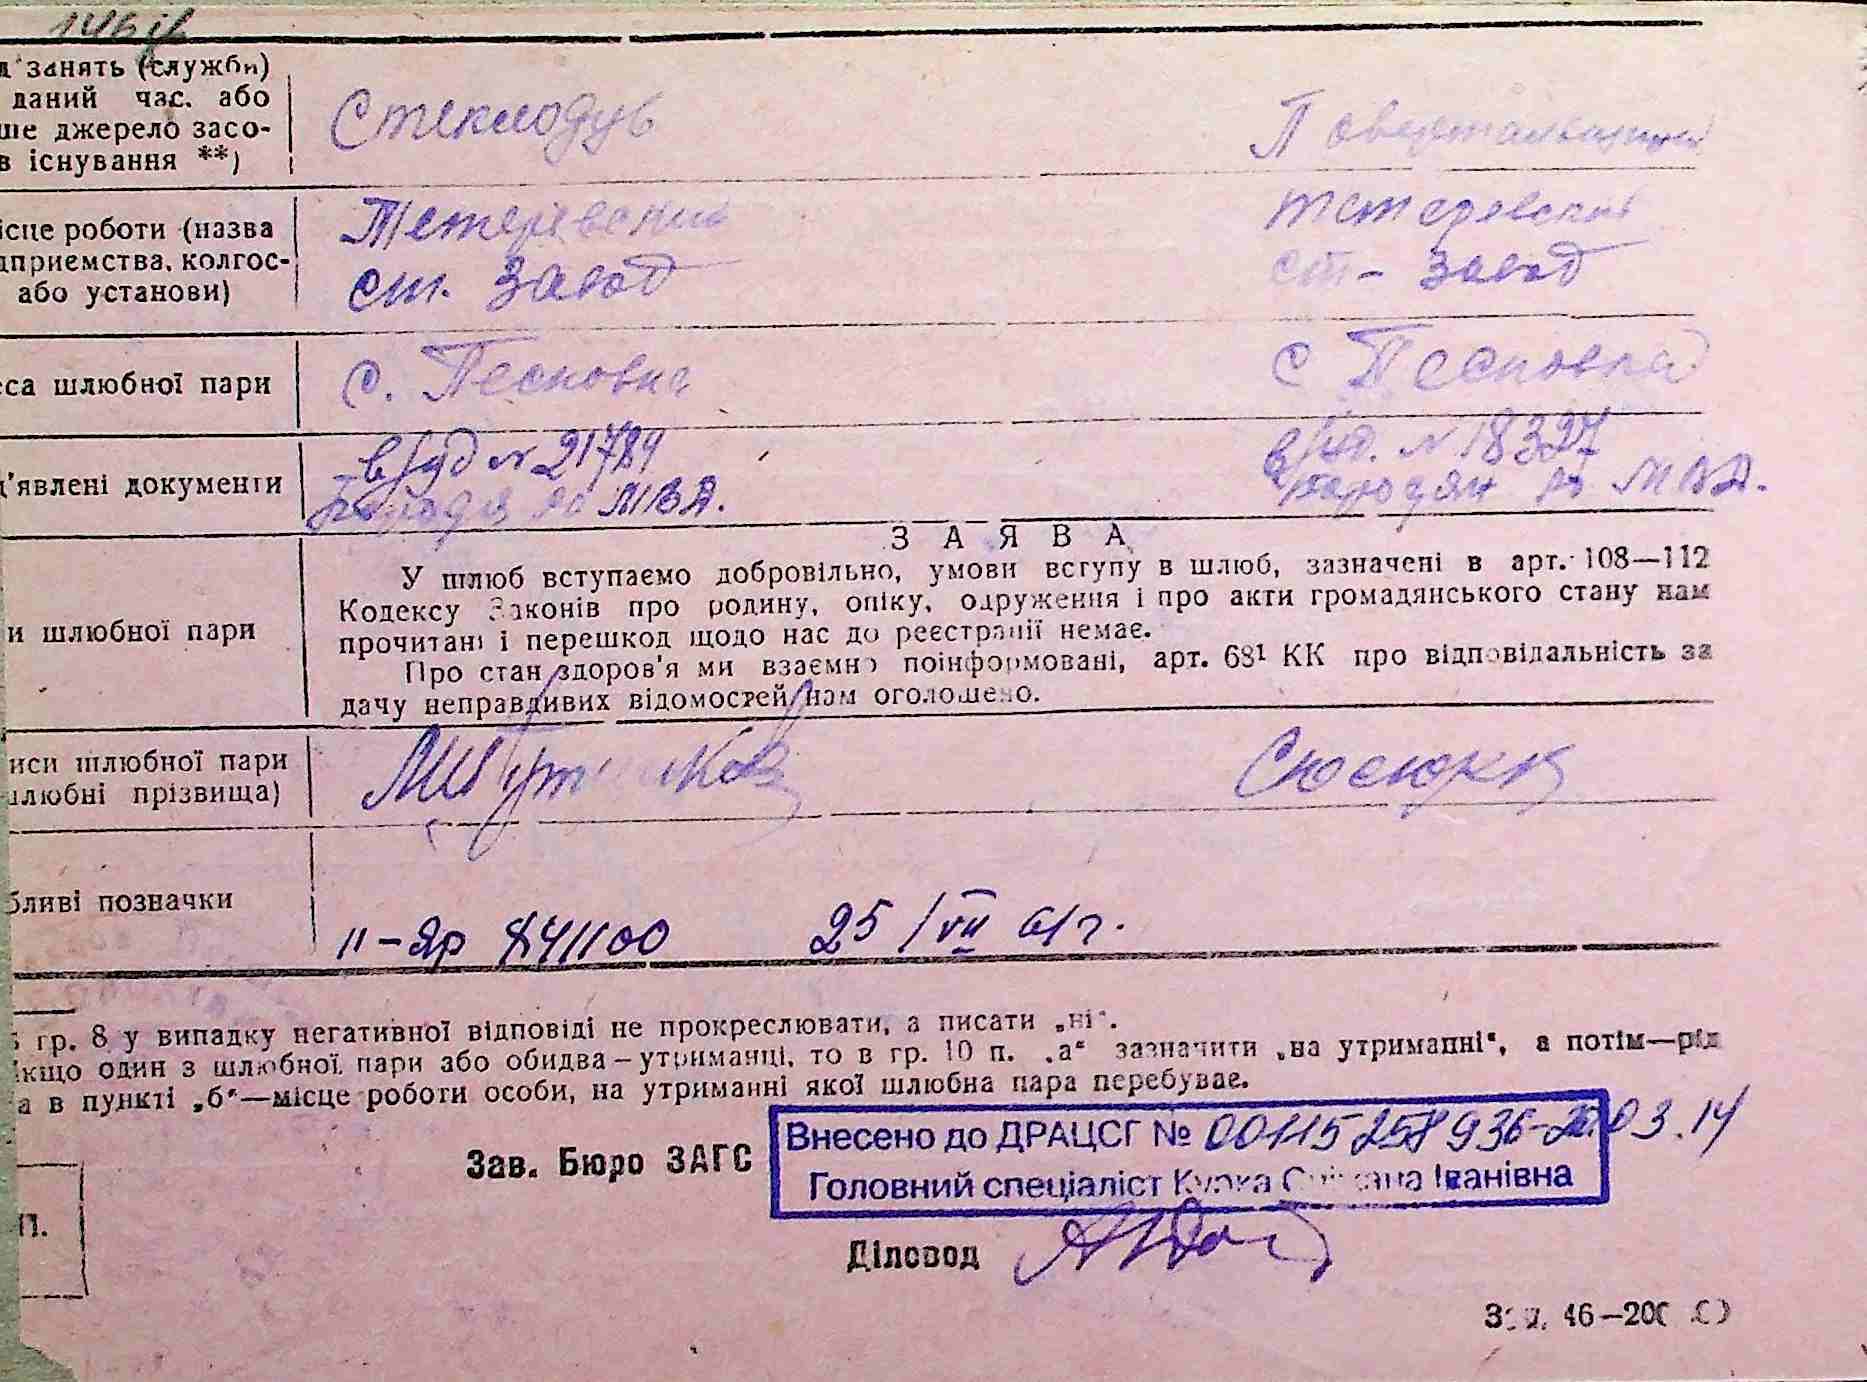 146
д занять (служби)
даний час. або
ше джерело засо-
в існування **)
Стеклодув
ісце роботи (назва
дприємства, колгос-
або установи)
Тетеревский
тетеревский
ст. завод
ст- завод
еса шлюбної пари
с. Песковка
с Песковка
'явлені документи
в/уд № 21784
в/уд. № 18327
МВД.
МВД.
З А Я В А
У шлюб вступаємо добровільно, умови вступу в шлюб, зазначені в арт. 108—112
Кодексу Законів про родину, опіку, одруження і про акти громадянського стану нам
прочитані і перешкод щодо нас до реєстрації немає.
Про стан здоров'я ми взаємно поінформовані, арт. 68¹ КК про відповідальність за
дачу неправдивих відомостей нам оголошено.
и шлюбної пари
иси шлюбної пари
шлюбні прізвища)
бливі позначки
II-Яр 841100 25/VII 61г.
гр. 8 у випадку негативної відповіді не прокреслювати, а писати „ні".
кщо один з шлюбної пари або обидва—утриманці, то в гр. 10 п. „а" зазначити „на утриманні", а потім—рід
а в пункті „б"—місце роботи особи, на утриманні якої шлюбна пара перебуває.
Зав. Бюро ЗАГС
Внесено до ДРАЦСГ № 00115258936-20.03.14
Головний спеціаліст Курка Світлана Іванівна
П.
Діловод
Зам. 46—200